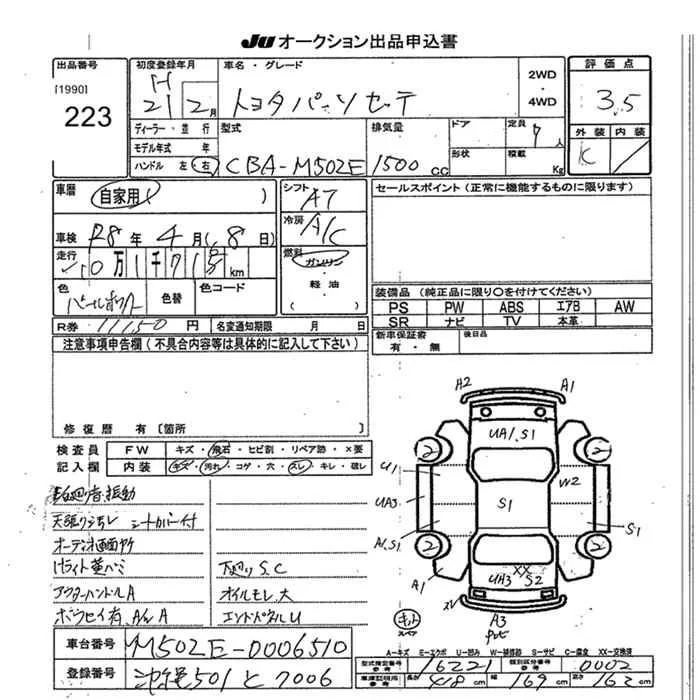 JU オークション出品申込書
出品番号 初度登録年月 車名・グレード 2WD・4WD 評価点
[1990] H 21年 2月 トヨタ パッソセッテ 3.5
223
ディーラー・並行 型式 排気量 ドア 定員 外装 内装
モデル年式 年 形状 積載 7人
ハンドル 左 右 CBA-M502E 1500cc Kg C
車歴 自家用 ( ) シフト AT セールスポイント(正常に機能するものに限ります)
車検 R8年4月(8日) 冷房 A/C
走行 10万1千71 km 燃料 ガソリン・軽油
色 色替 色コード 装備品(純正品に限り○を付けてください)
PS PW ABS エアB AW
R券 11150円 名変通知期限 月 日 SR ナビ TV 本革
注意事項申告欄(不具合内容等は具体的に記入して下さい) 新車保証書 有・無 後日品
修復歴 有〔箇所 〕
検査員 FW キズ・飛石・ヒビ割・リペア跡・×要
記入欄 内装 キズ・汚れ・コゲ・穴・スレ・キレ・破レ
A2 A1
UA1.S1
2 2
U1 W2
UA3 S1
A1.S1 S1
2 2
A1 XX
UA3 S2
XV キット スペア A3
振動
天張り シートカバー付
オーディオ画面
ライト黄バミ 下廻りS.C
アウターハンドルA オイルモレ大
ボウセイ有 A/W A エンドパネルU
A-キズ E-エクボ U-凹み W-補修跡 S-サビ C-腐食 XX-交換済
車台番号 M502E-0006510 型式指定番号 参考 16221 類別区分番号 参考 0002
登録番号 沖縄501と7006 車庫証明用 参考 長さ 418cm 幅 169cm 高さ 162cm